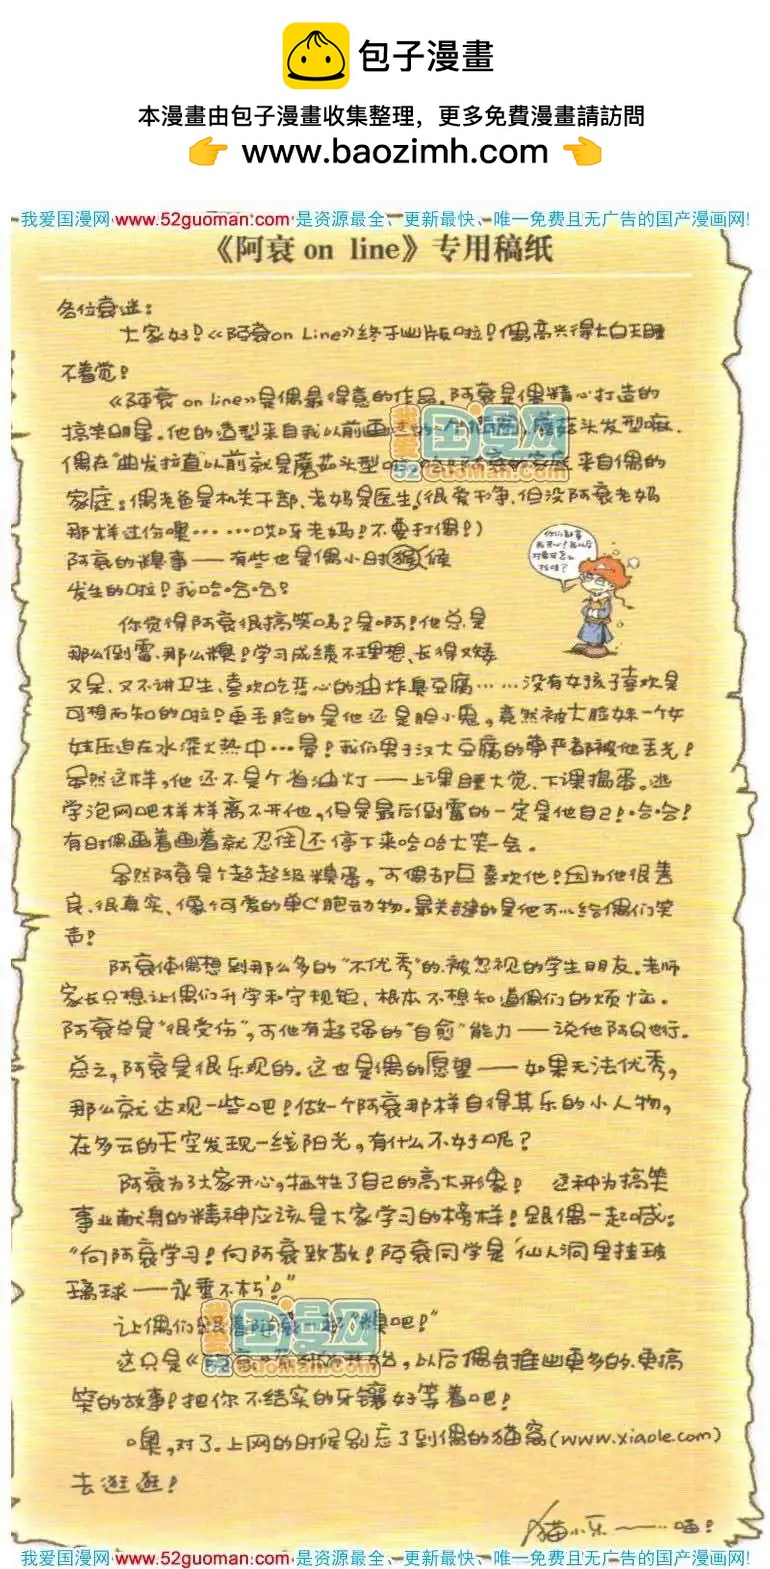 包子漫畫
本漫畫由包子漫畫收集整理，更多免費漫畫請訪問
👉 www.baozimh.com 👈
我爱国漫网 www.52guoman.com 是资源最全、更新最快、唯一免费且无广告的国产漫画网!
《阿衰 on line》专用稿纸
各位衰迷：
大家好！《阿衰on Line》终于出版啦！偶高兴得大白天睡
不着觉！
《阿衰 on line》是偶最得意的作品，阿衰是偶精心打造的
搞笑明星。他的造型来自我以前画 蘑菇头发型嘛.
偶在"曲发拉直"以前就是蘑菇头型 来自偶的
家庭：偶老爸是机关干部、老妈是医生(很爱干净，但没阿衰老妈
那样过份噢……哎呀老妈！不要打偶！)
阿衰的糗事——有些也是偶小时候
发生的啦！我哈哈哈！
你觉得阿衰很搞笑吗？是啊！他总是
那么倒霉、那么糗！学习成绩不理想、长得又矮
又呆、又不讲卫生、喜欢吃恶心的油炸臭豆腐……没有女孩子喜欢是
可想而知的啦！更丢脸的是他还是胆小鬼，竟然被大脸妹一个女
娃压迫在水深火热中…晕！我们男子汉大豆腐的尊严都被他丢光！
虽然这样，他还不是个省油灯——上课睡大觉、下课捣蛋。逃
学泡网吧样样离不开他，但是最后倒霉的一定是他自己！哈哈！
有时偶画着画着就忍住不停下来哈哈大笑一会。
虽然阿衰是个超超级糗蛋，可偶却巨喜欢他！因为他很善
良、很真实、像个可爱的单C胞动物。最关键的是他可以给偶们笑
声！
阿衰使偶想到那么多的"不优秀"的、被忽视的学生朋友。老师
家长只想让偶们升学和守规矩、根本不想知道偶们的烦恼。
阿衰总是"很受伤"，可他有超强的"自愈"能力——说他阿Q也行。
总之，阿衰是很乐观的。这也是偶的愿望——如果无法优秀，
那么就达观一些吧！做一个阿衰那样自得其乐的小人物，
在多云的天空发现一线阳光，有什么不好呢？
阿衰为了大家开心，牺牲了自己的高大形象！ 这种为搞笑
事业献身的精神应该是大家学习的榜样！跟偶一起喊：
"向阿衰学习！向阿衰致敬！阿衰同学是'仙人洞里挂玻
璃球——永垂不朽'！"
让偶们跟着阿衰一起"糗吧！"
这只是《 》 开始，以后偶会推出更多的、更搞
笑的故事！把你不结实的牙镶好等着吧！
噢，对了。上网的时候别忘了到偶的猫窝(www.xiaole.com)
去逛逛！
猫小乐～～…喵！
我爱国漫网 www.52guoman.com 是资源最全、更新最快、唯一免费且无广告的国产漫画网!